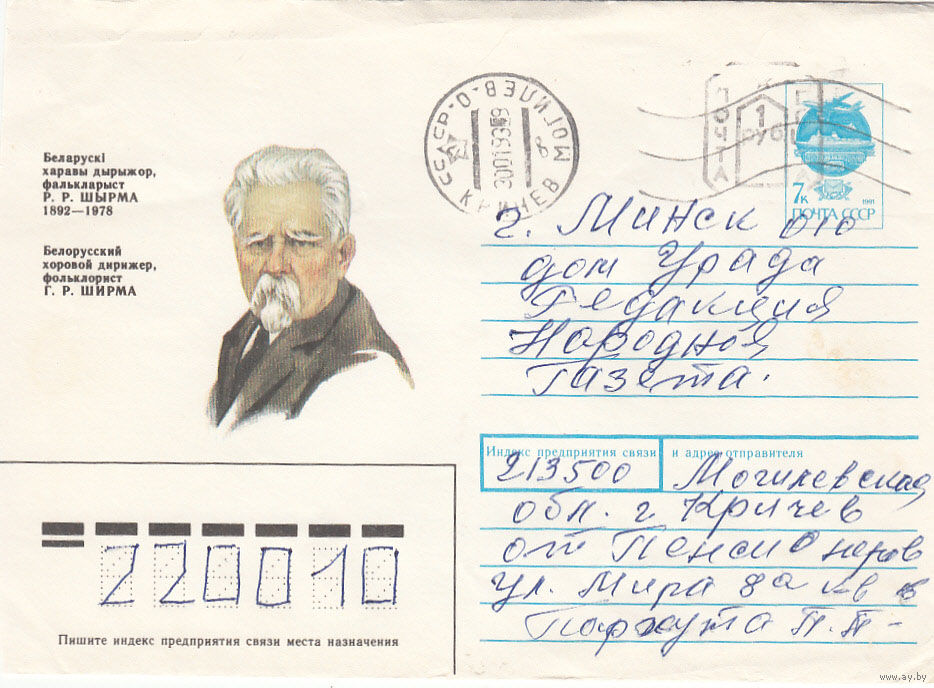 Беларускі
харавы дырыжор,
фалькларыст
Р. Р. ШЫРМА
1892—1978
Белорусский
хоровой дирижер,
фольклорист
Г. Р. ШИРМА
СССР МОГИЛЕВ. О.
КРИЧЕВ
ПОЧТА
1
РУБ
7к
1991
ПОЧТА СССР
г. Минск 010
дом Урада
Редакция
Народная
Газета.
Индекс предприятия связи и адрес отправителя
213500 Могилевская
обл. г Кричев
от Пенсионеров
ул. Мира 8а кв 8
Пархута П.П-
220010
Пишите индекс предприятия связи места назначения
www.ay.by